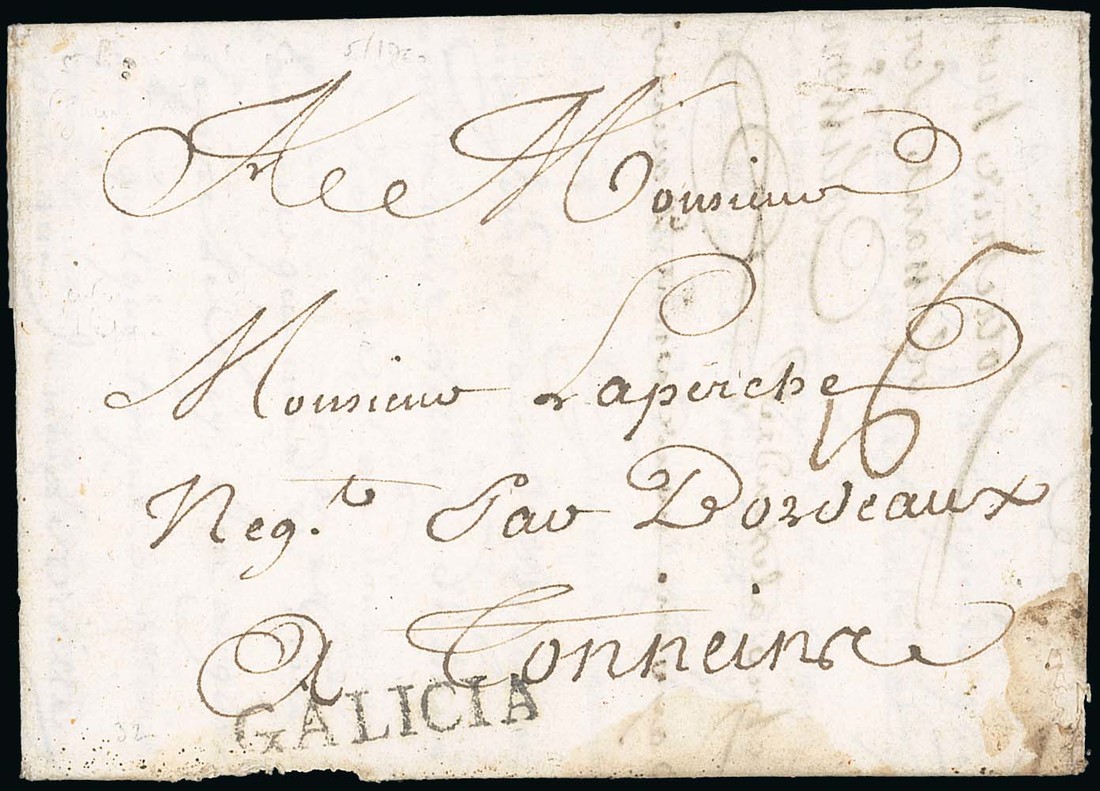 A Monsieur
Monsieur Laperche
16
Neg.t Par Bordeaux
A Tonneins
GALICIA
32